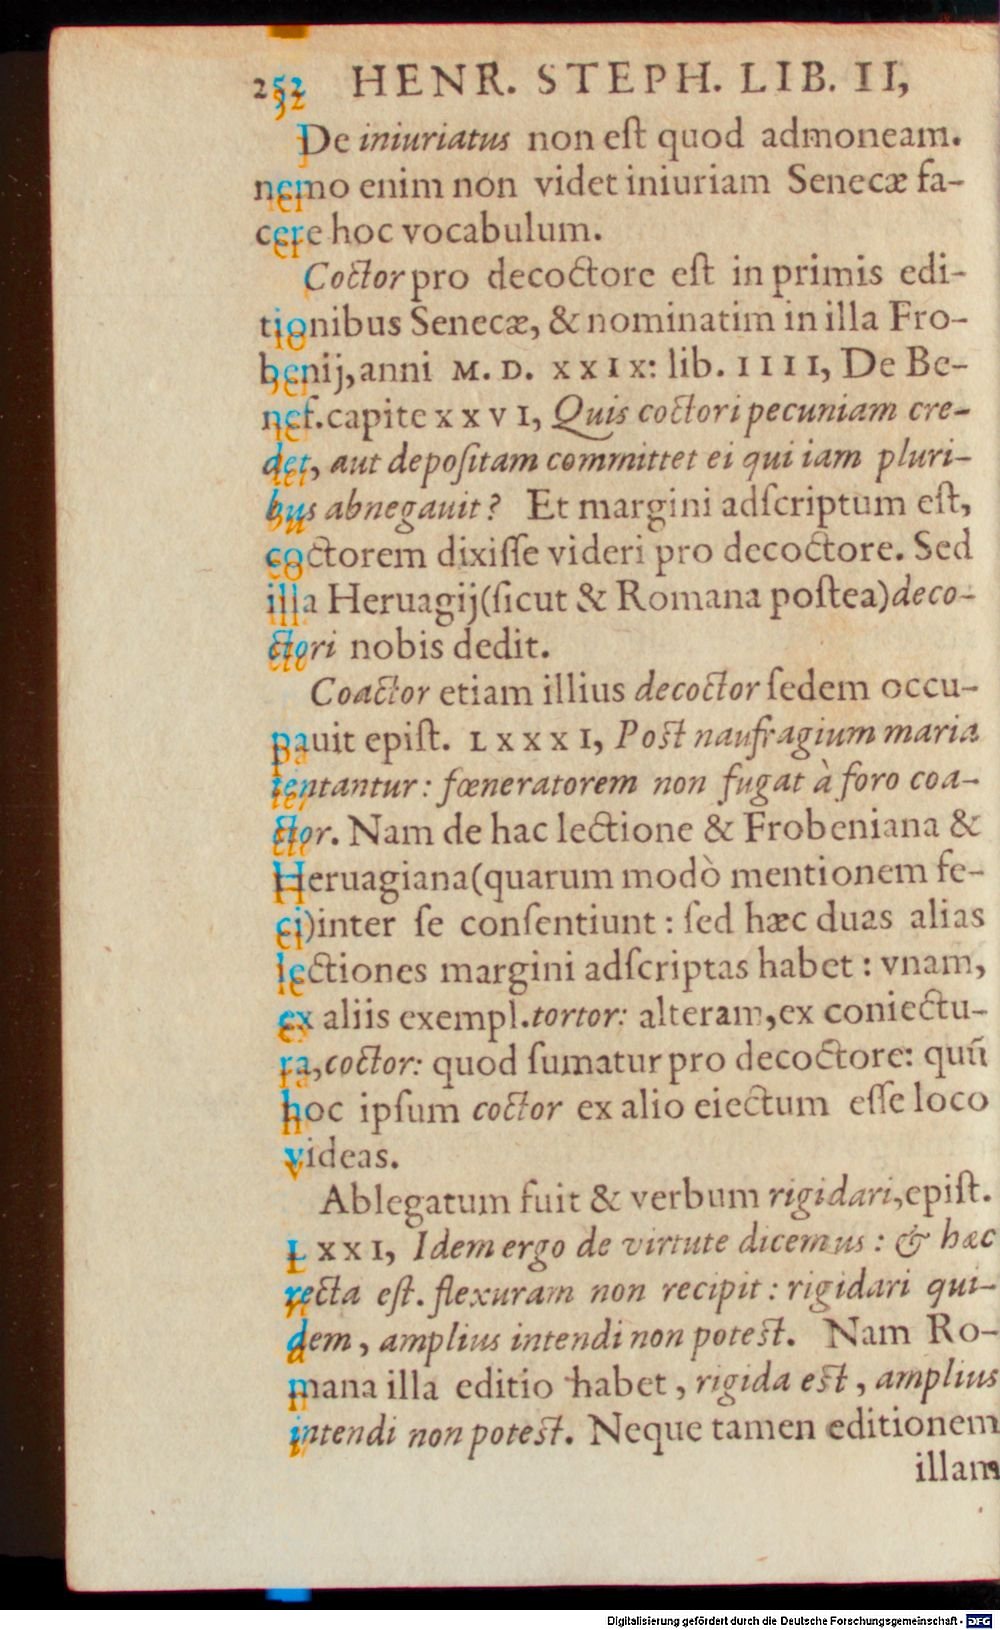 252 HENR. STEPH. LIB. II,
De iniuriatus non eſt quod admoneam.
nemo enim non videt iniuriam Senecæ fa-
cere hoc vocabulum.
Coctor pro decoctore eſt in primis edi-
tionibus Senecæ, & nominatim in illa Fro-
benij, anni M. D. XXIX: lib. IIII, De Be-
nef. capite XXVI, Quis coctori pecuniam cre-
det, aut depoſitam committet ei qui iam pluri-
bus abnegauit? Et margini adſcriptum eſt,
coctorem dixiſſe videri pro decoctore. Sed
illa Heruagij (ſicut & Romana poſtea) deco-
ctori nobis dedit.
Coactor etiam illius decoctor ſedem occu-
pauit epiſt. LXXXI, Poſt naufragium maria
tentantur: fœneratorem non fugat à foro coa-
ctor. Nam de hac lectione & Frobeniana &
Heruagiana (quarum modò mentionem fe-
ci) inter ſe conſentiunt: ſed hæc duas alias
lectiones margini adſcriptas habet: vnam,
ex aliis exempl. tortor: alteram, ex coniectu-
ra, coctor: quod ſumatur pro decoctore: quū
hoc ipſum coctor ex alio eiectum eſſe loco
videas.
Ablegatum fuit & verbum rigidari, epiſt.
LXXI, Idem ergo de virtute dicemus: & hæc
recta eſt. flexuram non recipit: rigidari qui-
dem, amplius intendi non poteſt. Nam Ro-
mana illa editio habet, rigida eſt, amplius
intendi non poteſt. Neque tamen editionem
illam
Digitalisierung gefördert durch die Deutsche Forschungsgemeinschaft - DFG